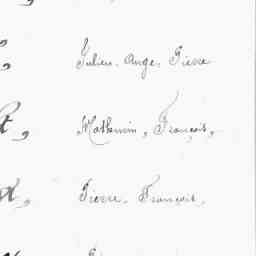 Julien, Ange, Pierre
Mathurin, François,
Pierre, François,